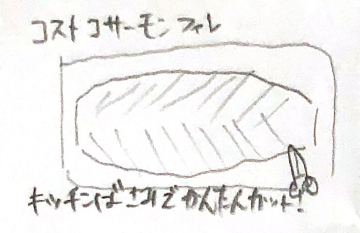 コストコサーモンフィレ
キッチンばさみでかんたんカット!